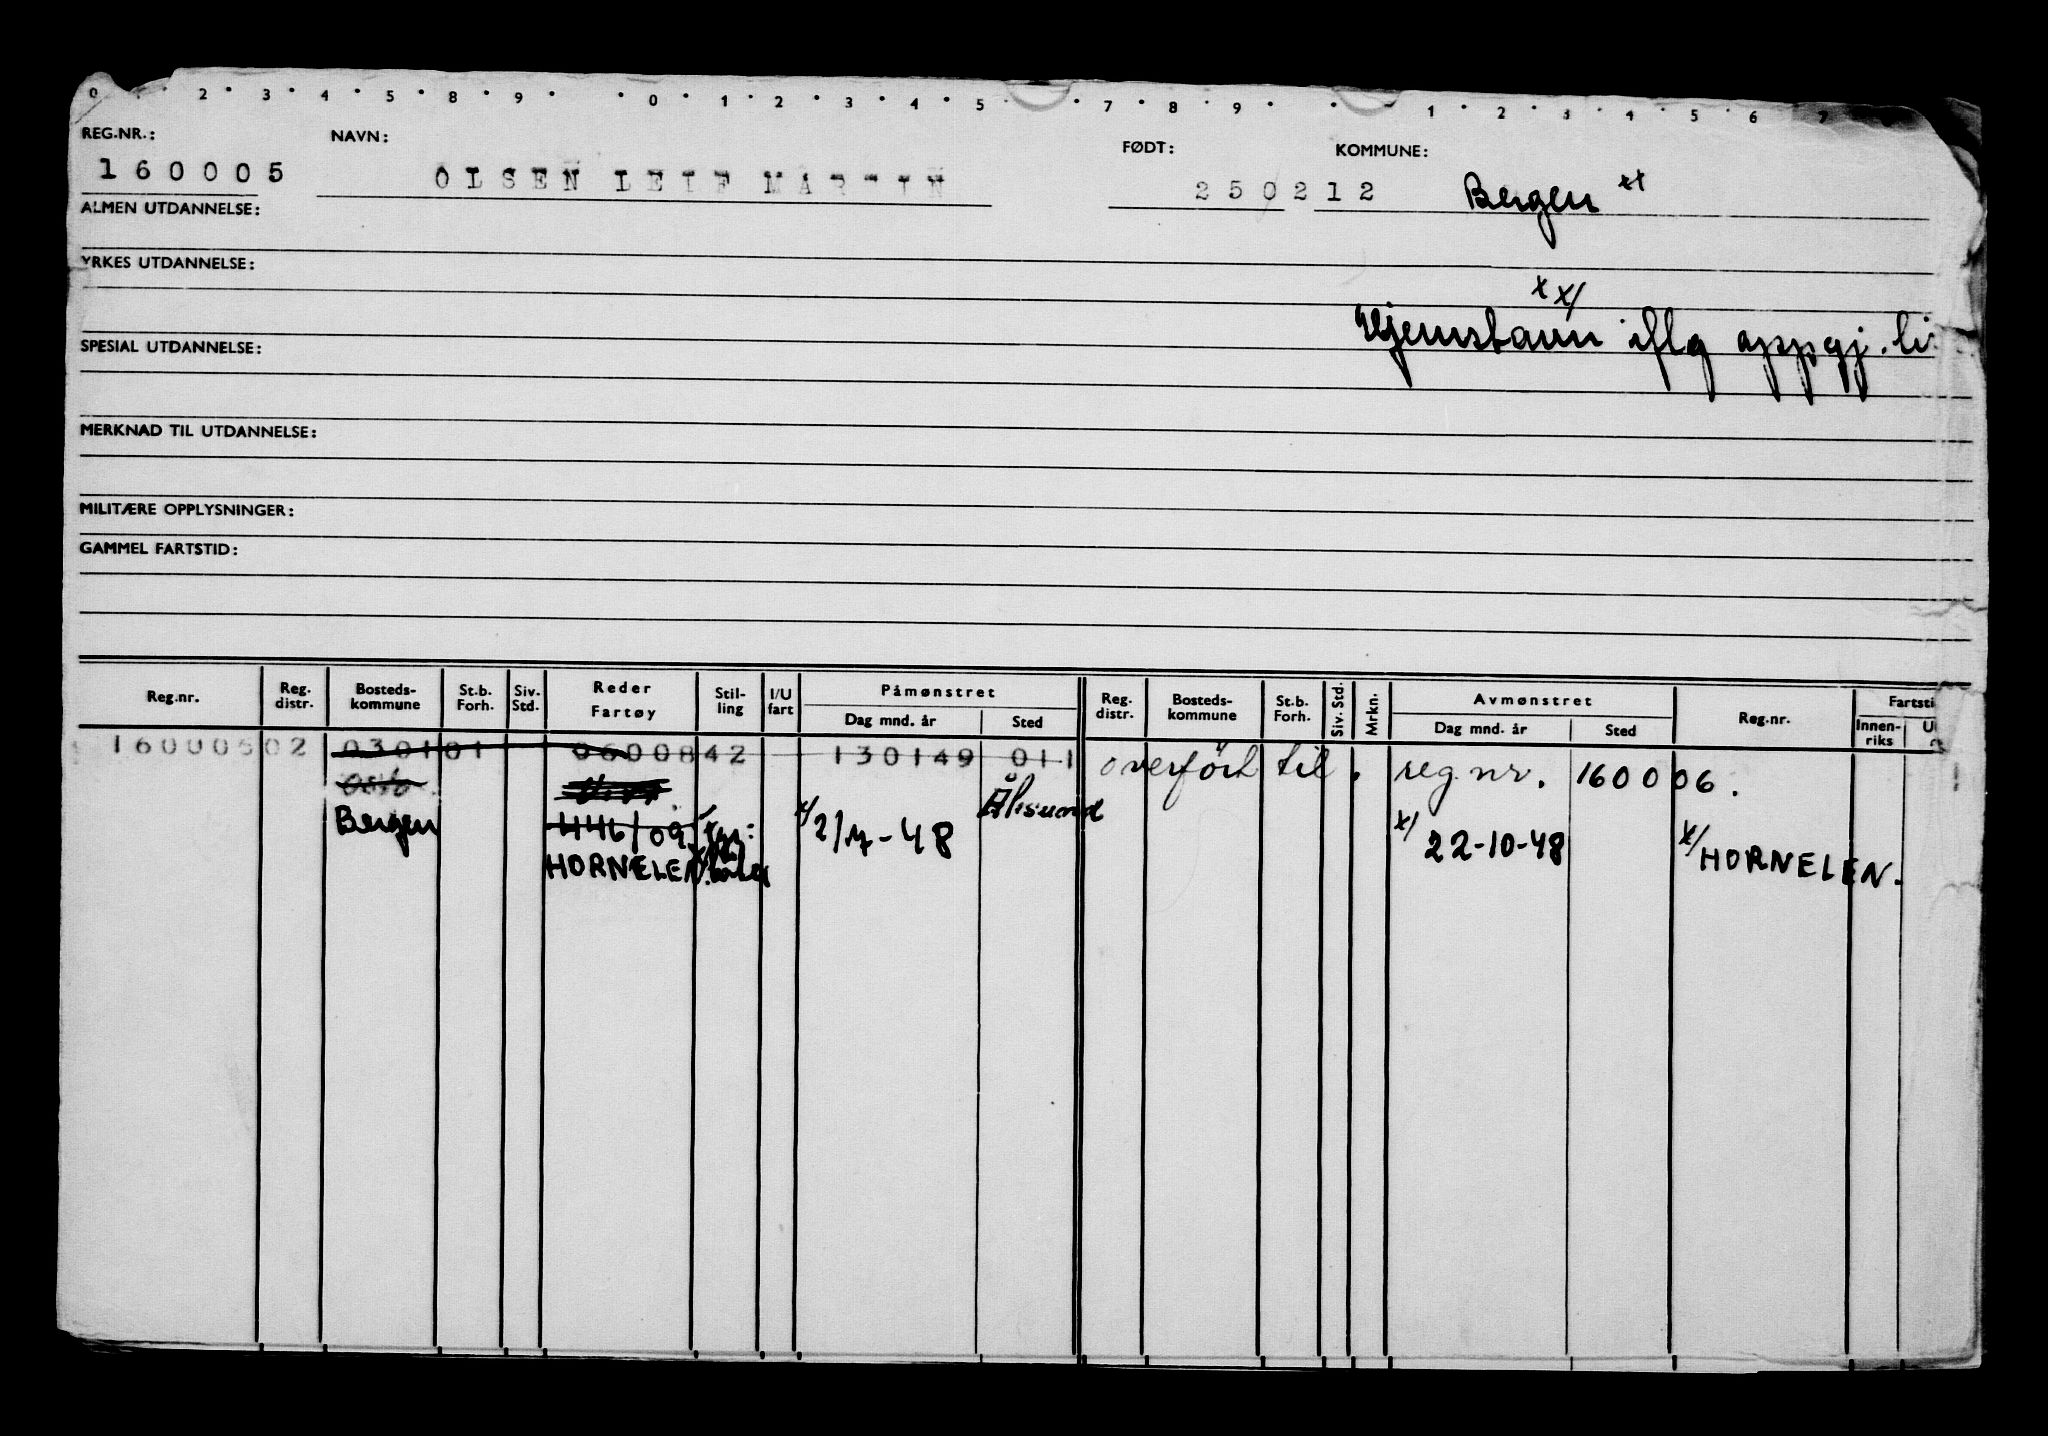 0 · · 2 · 3 · 4 · 5 · 8 · 9 · · 0 · 1 · 2 · 3 · 4 · 5 · · 7 · 8 · 9 · · 1 · 2 · 3 · 4 · 5 · 6 7
REG.NR.: NAVN: FØDT: KOMMUNE:
160005 OLSEN LEIF MARTIN 250212 Bergen xx
ALMEN UTDANNELSE:
YRKES UTDANNELSE:
xx/
Hjemstavn iflg oppgj. li
SPESIAL UTDANNELSE:
MERKNAD TIL UTDANNELSE:
MILITÆRE OPPLYSNINGER:
GAMMEL FARTSTID:
Reg.nr. Reg. distr. Bosteds-kommune St.b. Forh. Siv. Std. Reder Fartøy Stil-ling I/U fart Påmønstret Dag mnd. år Sted Reg. distr. Bosteds-kommune St.b. Forh. Siv. Std. Mrkn. Avmønstret Dag mnd. år Sted Reg.nr. Fartsti Innen-riks U
16000502 030101 0600842 130149 011 overført til reg nr. 160006.
Oslo
Bergen 446/09 x/ 2/7-48 Ålesund x/ 22-10-48 x/ HORNELEN.
HORNELEN